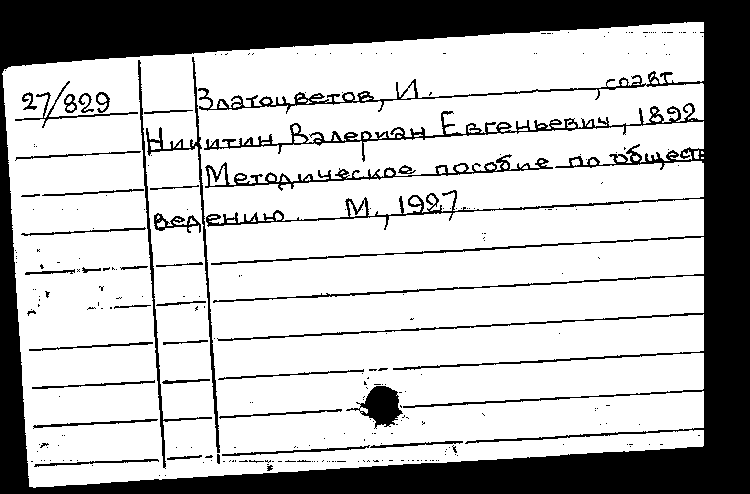 27/829 Златоцветов, И. , соавт.
Никитин, Валериан Евгеньевич, 1892
Методическое пособие по обществ
ведению. М., 1927.